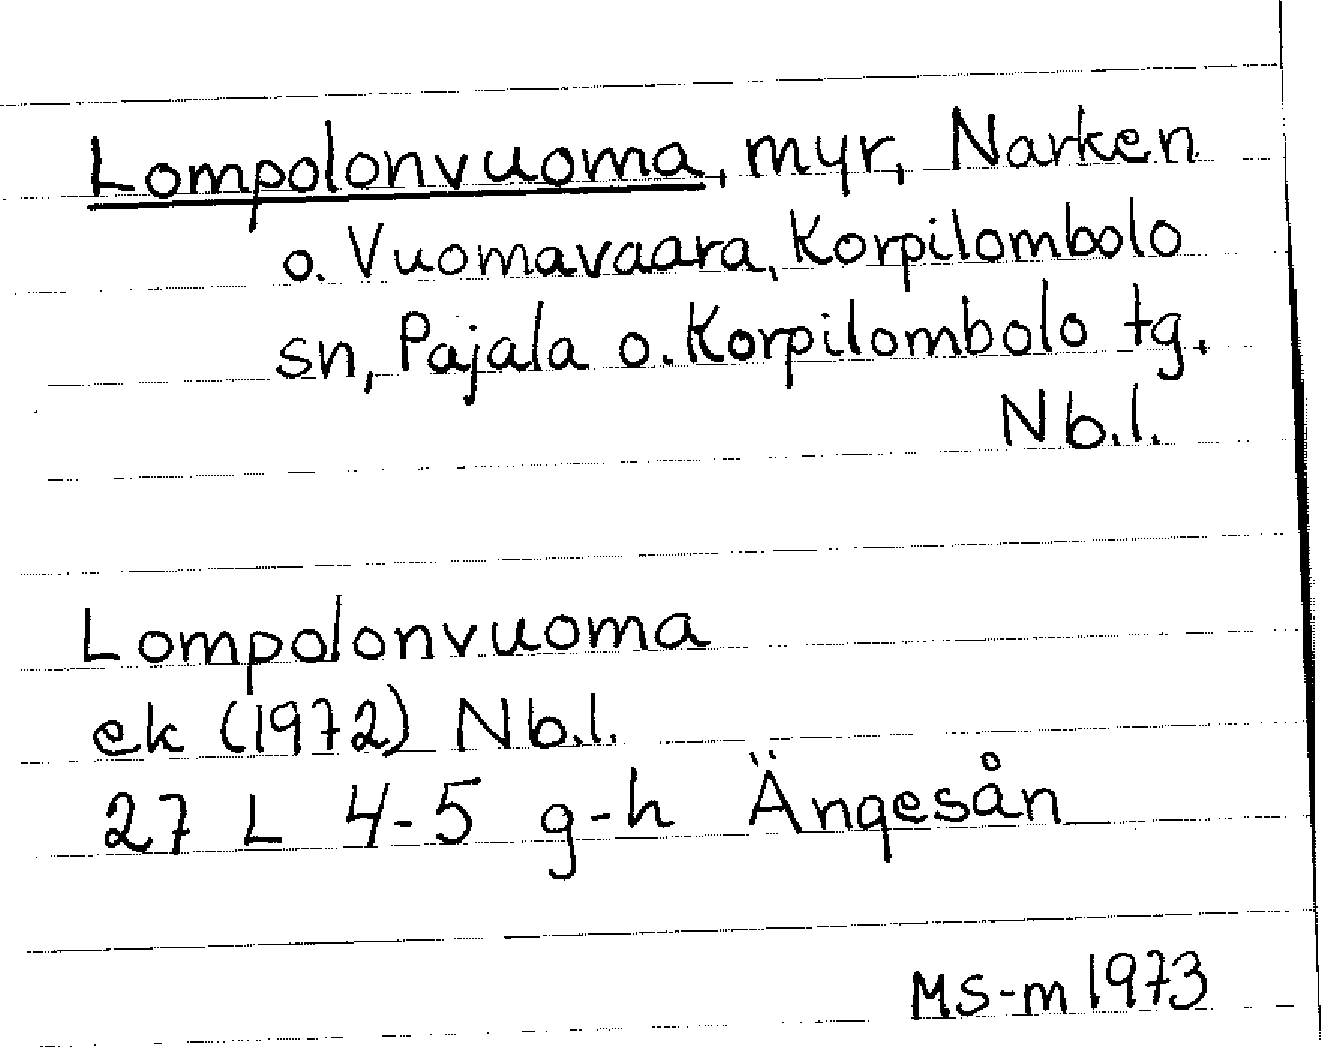 Lompolonvuoma, myr, Narken
o. Vuomavaara, Korpilombolo
sn, Pajala o. Korpilombolo tg.
Nb.l.
Lompolonvuoma
ek (1972) Nb.l.
27 L 4-5 g-h Ängesån
MS-m 1973